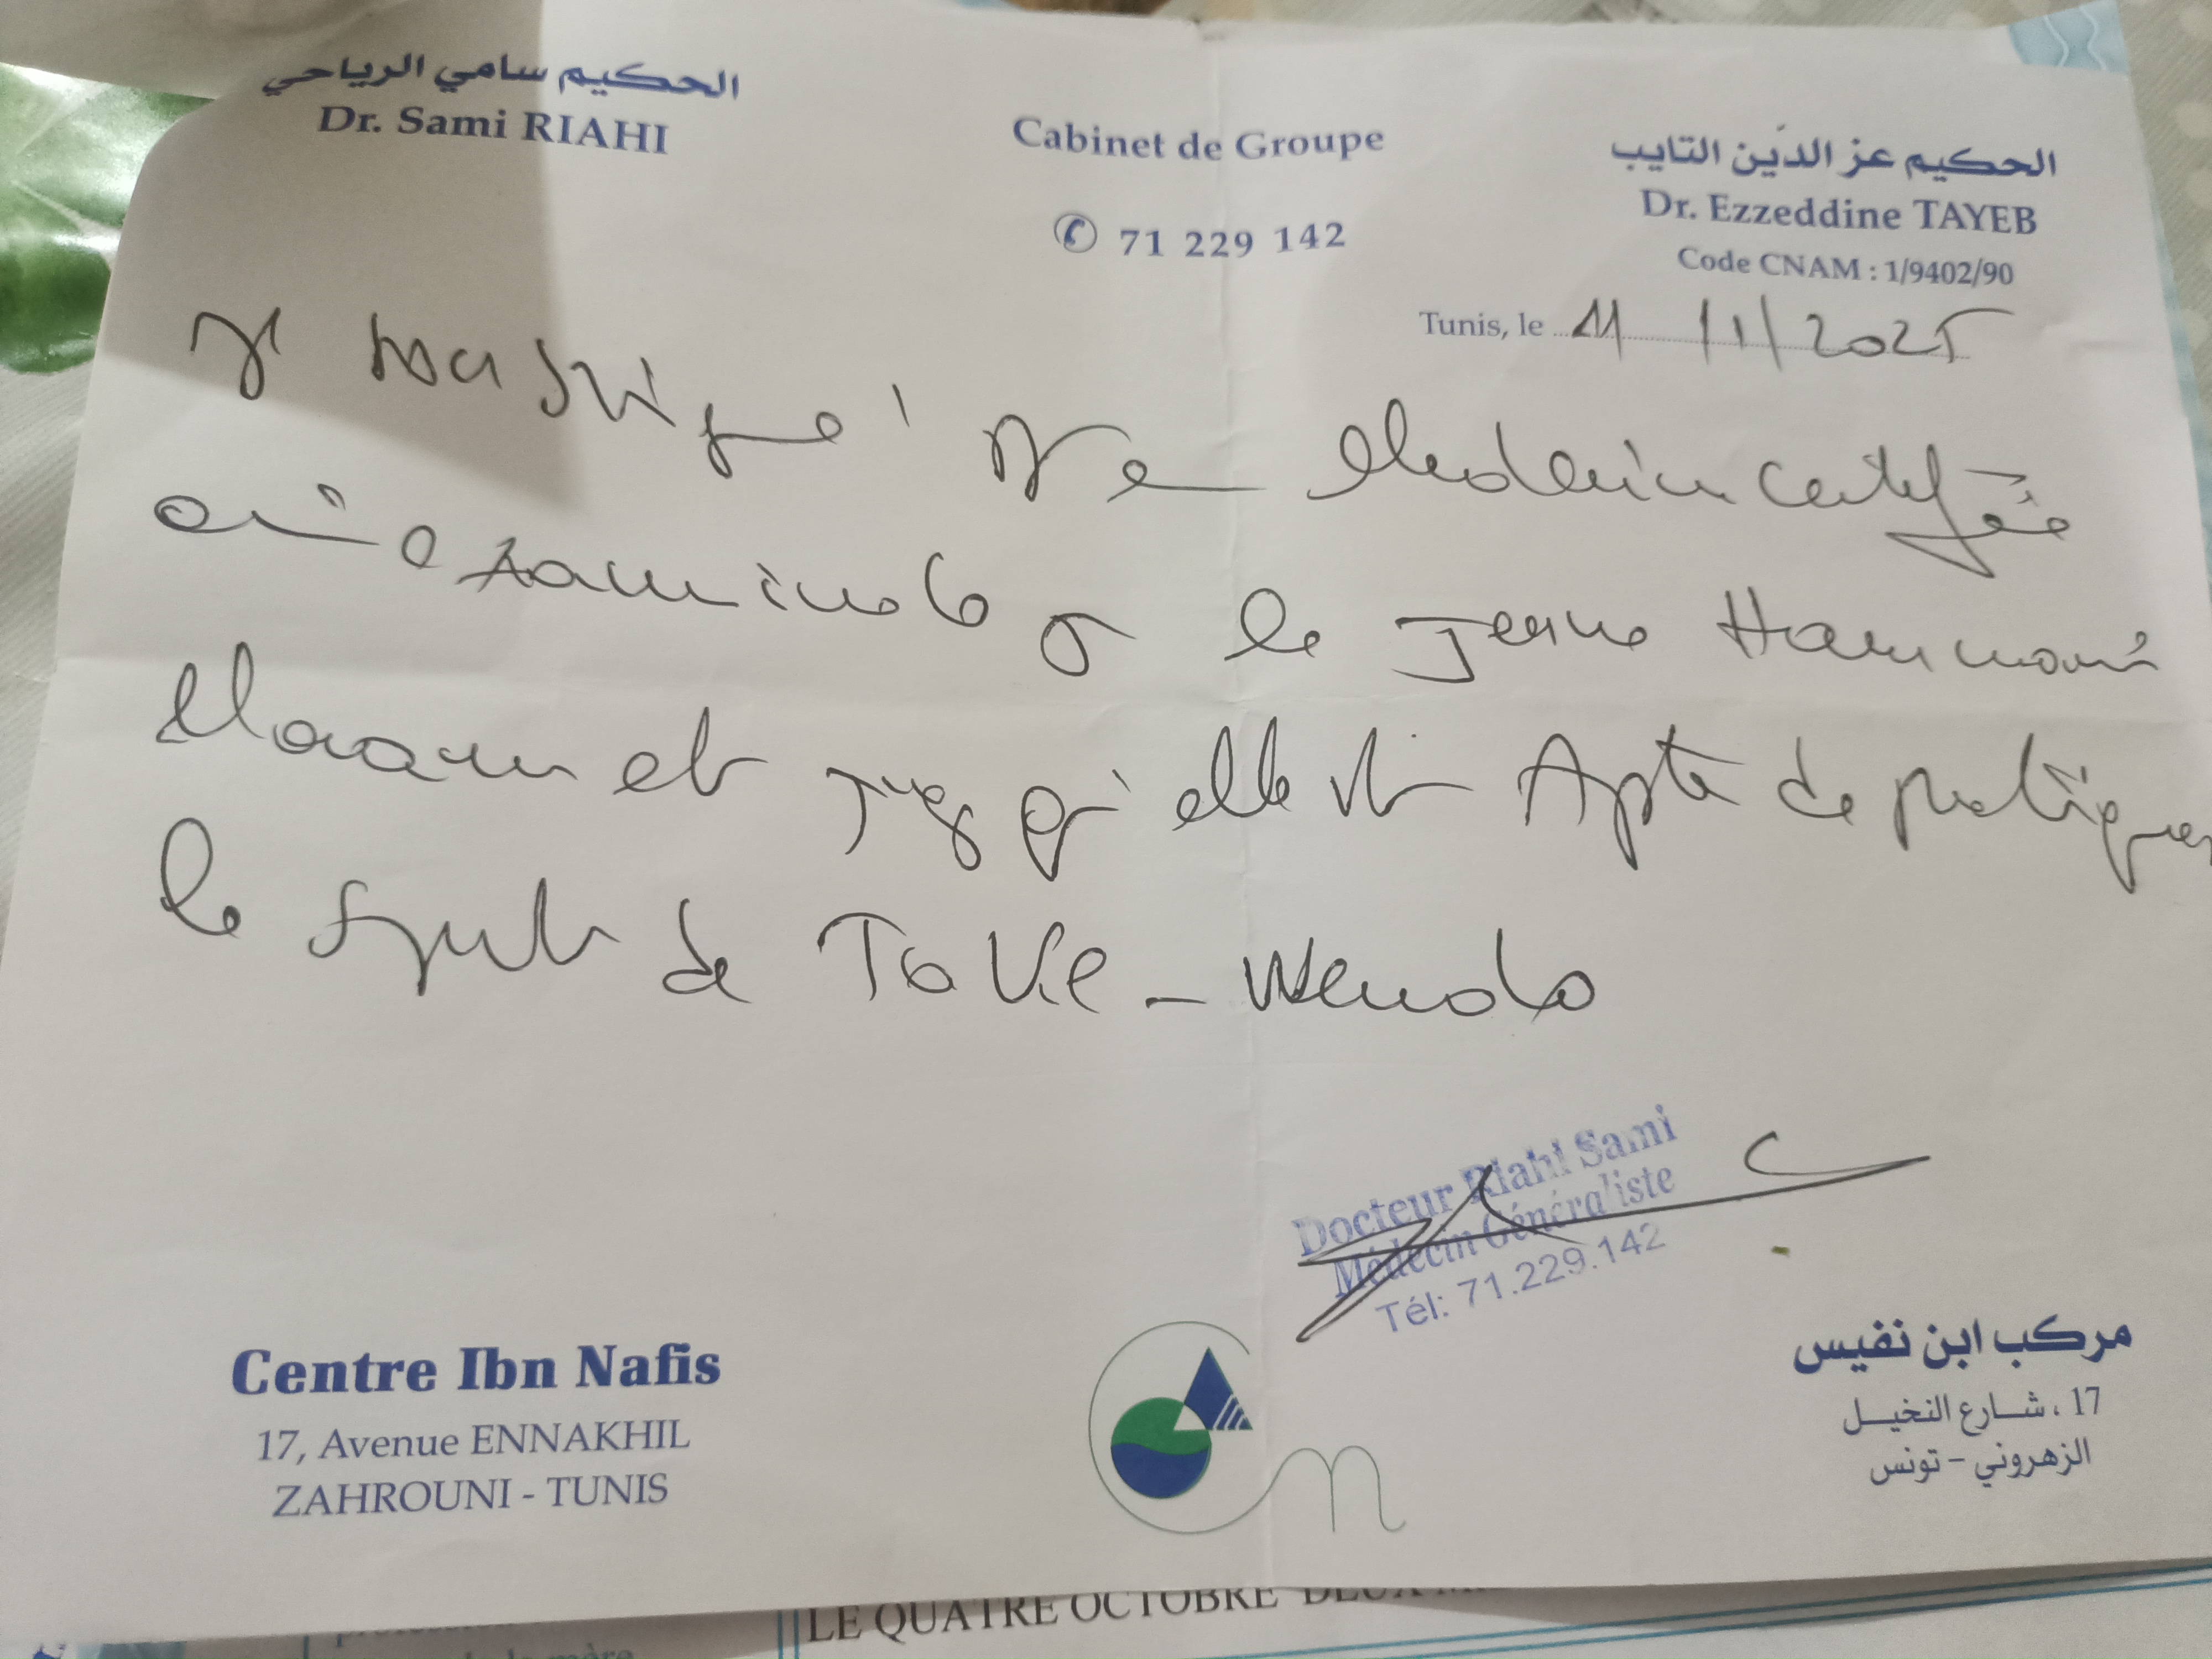 الحكيم سامي الرياحي
Dr. Sami RIAHI
Cabinet de Groupe
71 229 142
الحكيم عز الدّين التايب
Dr. Ezzeddine TAYEB
Code CNAM : 1/9402/90
Tunis, le 11/11/2025
Je soussigné Dr Medecin certifie
avoir examiné le jeune Hammami
Maram et juge qu'elle est Apte de pratiquer
le sport de TaKe-Wendo
Docteur Riahi Sami
Médecin Généraliste
Tél: 71.229.142
Centre Ibn Nafis
17, Avenue ENNAKHIL
ZAHROUNI - TUNIS
مركب ابن نفيس
17، شارع النخيل
الزهروني - تونس
LE QUATRE OCTOBRE DEUX